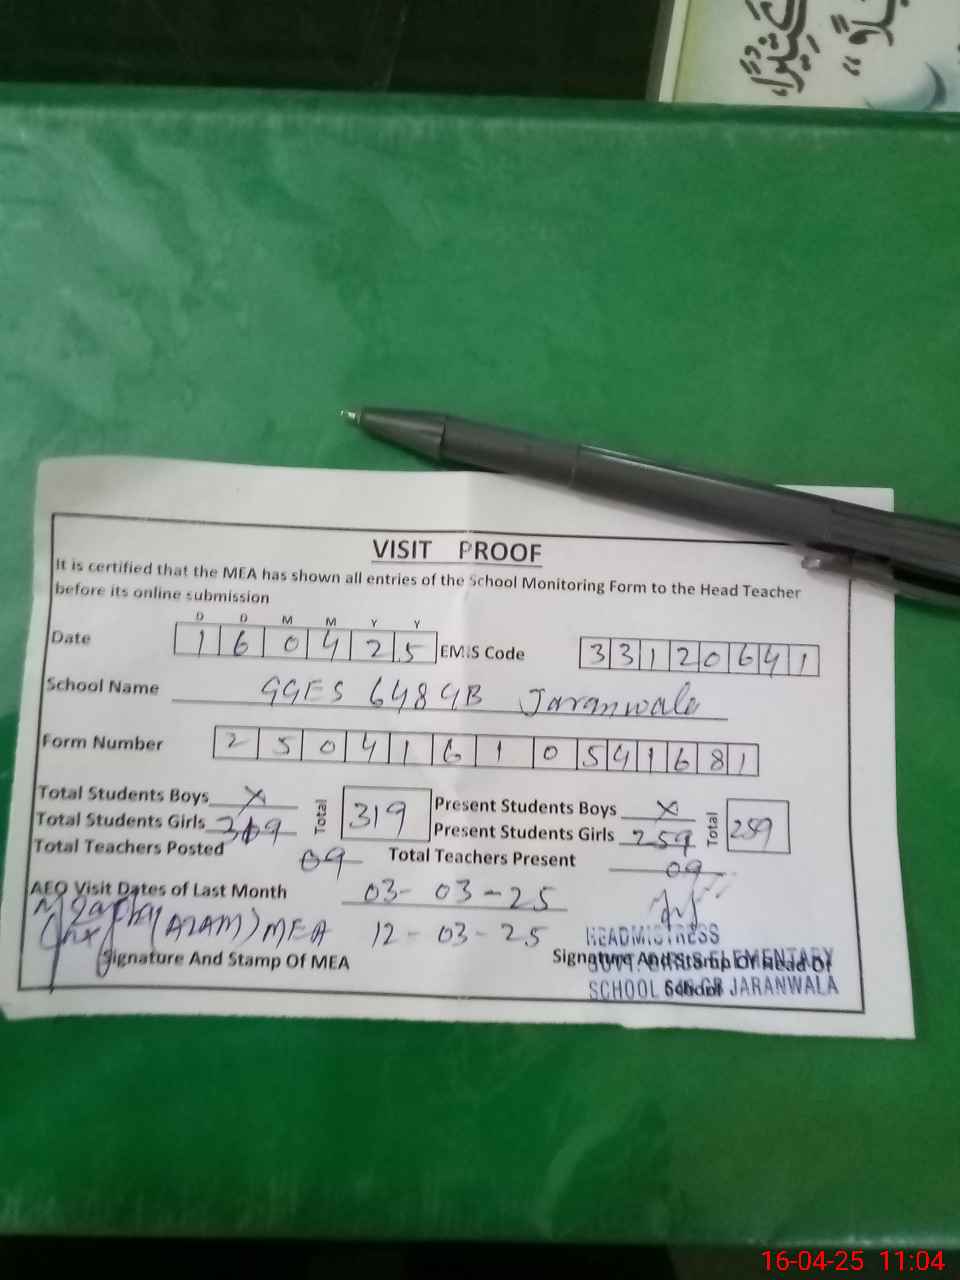 VISIT PROOF
It is certified that the MEA has shown all entries of the School Monitoring Form to the Head Teacher
before its online submission
D D M M Y Y
Date 1 6 0 4 2 5 EMIS Code 3 3 1 2 0 6 4 1
School Name GGES 648 GB Jaranwala
Form Number 2 5 0 4 1 6 1 0 5 4 1 6 8 1
Total Students Boys X Total 319 Present Students Boys X Total 259
Total Students Girls 319 Present Students Girls 259
Total Teachers Posted 09 Total Teachers Present 09
AEO Visit Dates of Last Month 03-03-25
(AZAM) MEA 12-03-25
HEADMISTRESS
Signature And Stamp Of MEA Signature And Stamp Of Head Of
GOVT. GIRLS ELEMENTARY
School
SCHOOL 648 GB JARANWALA
16-04-25 11:04